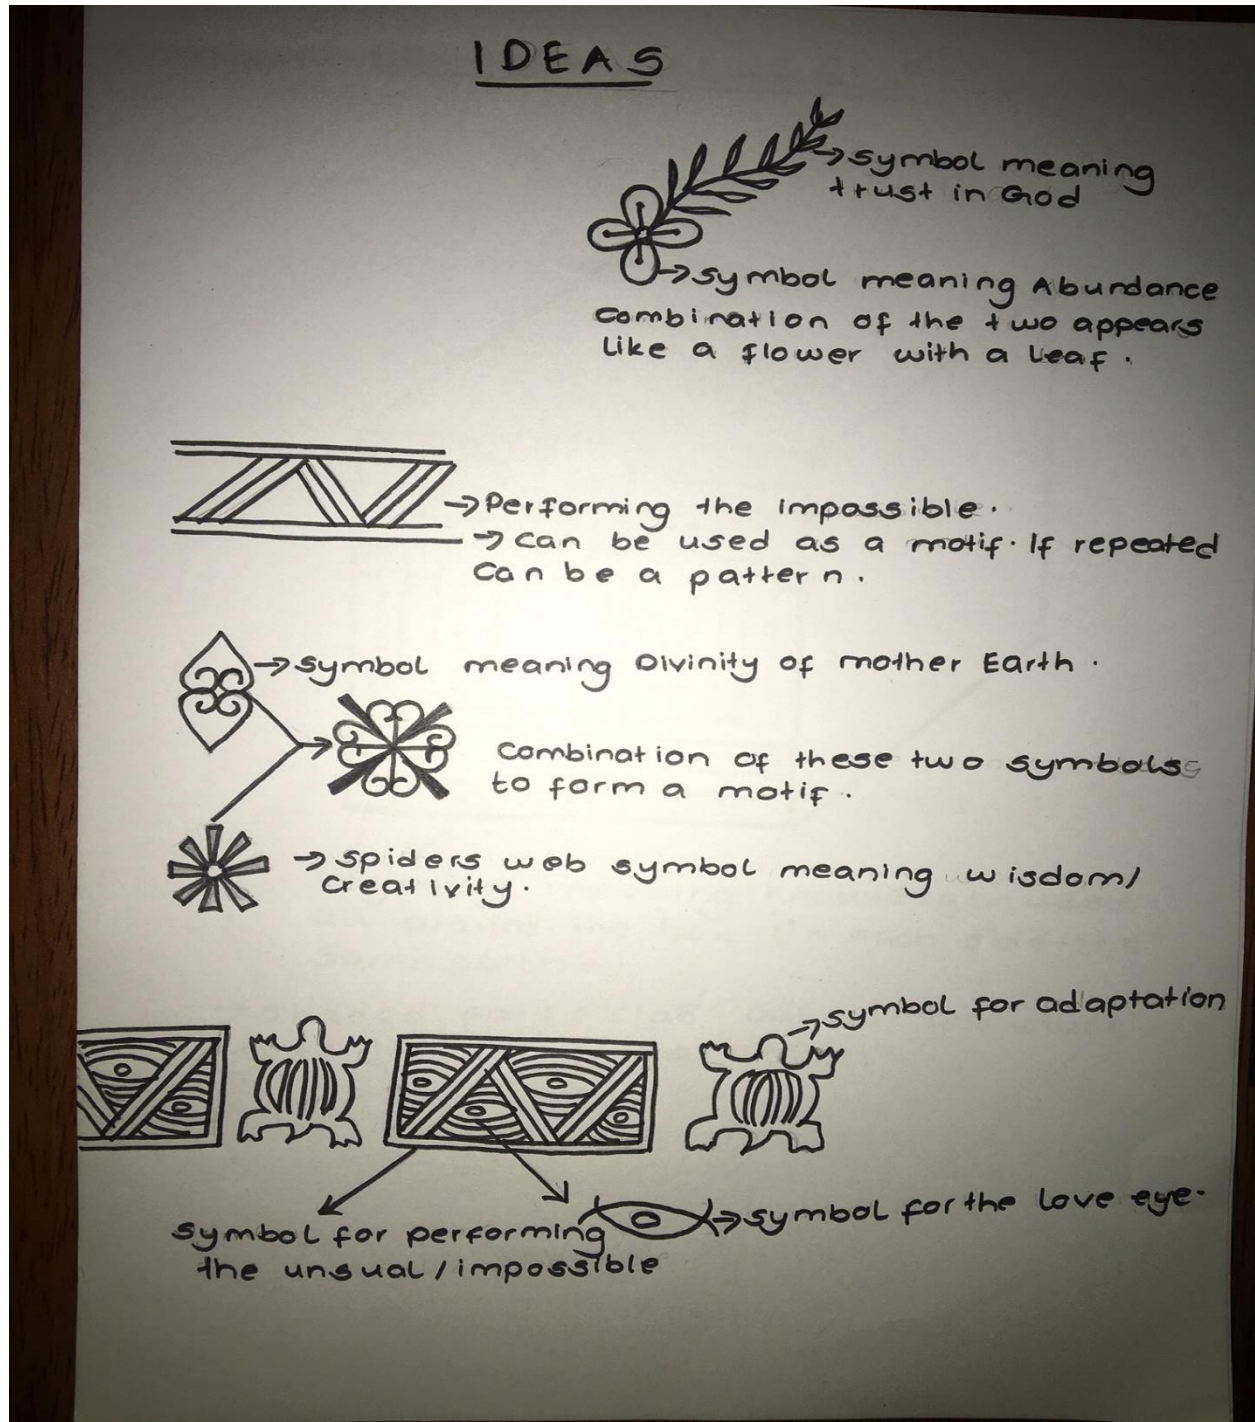 IDEAS
→symbol meaning
trust in God
→symbol meaning Abundance
combination of the two appears
like a flower with a leaf.
→Performing the impossible.
→ can be used as a motif. If repeated
can be a pattern.
→symbol meaning Divinity of mother Earth.
combination of these two symbols
to form a motif.
→ spiders web symbol meaning wisdom/
creativity.
→symbol for adaptation
→symbol for the love eye.
symbol for performing
the unsual/impossible